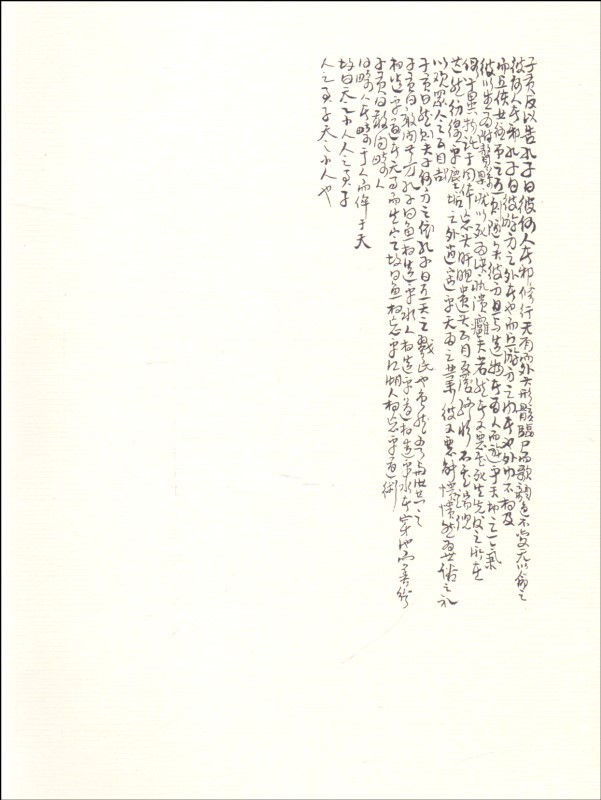 子贡反以告孔子曰彼何人者邪修行无有而外其形骸臨尸而歌颜色不变无以命之
彼何人者邪孔子曰彼游方之外者也而丘游方之内者也外内不相及
而丘使女往吊之丘则陋矣彼方且与造物者为人而游乎天地之一氣
彼以生为附贅縣疣以死为决溃癰夫若然者又恶知死生先後之所在
假于異物托于同体忘其肝胆遗其耳目反覆终始不知端倪
芒然彷徨乎塵垢之外逍遥乎无为之業彼又恶能愦愦然为世俗之礼
以观眾人之耳目哉
子贡曰然则夫子何方之依孔子曰丘天之戮民也虽然吾与汝共之
子贡曰敢问其方孔子曰鱼相造乎水人相造乎道相造乎水者穿池而养给
相造乎道者无事而生定故曰鱼相忘乎江湖人相忘乎道術
子贡曰敢问畸人
曰畸人者畸于人而侔于天
故曰天之小人人之君子
人之君子天之小人也